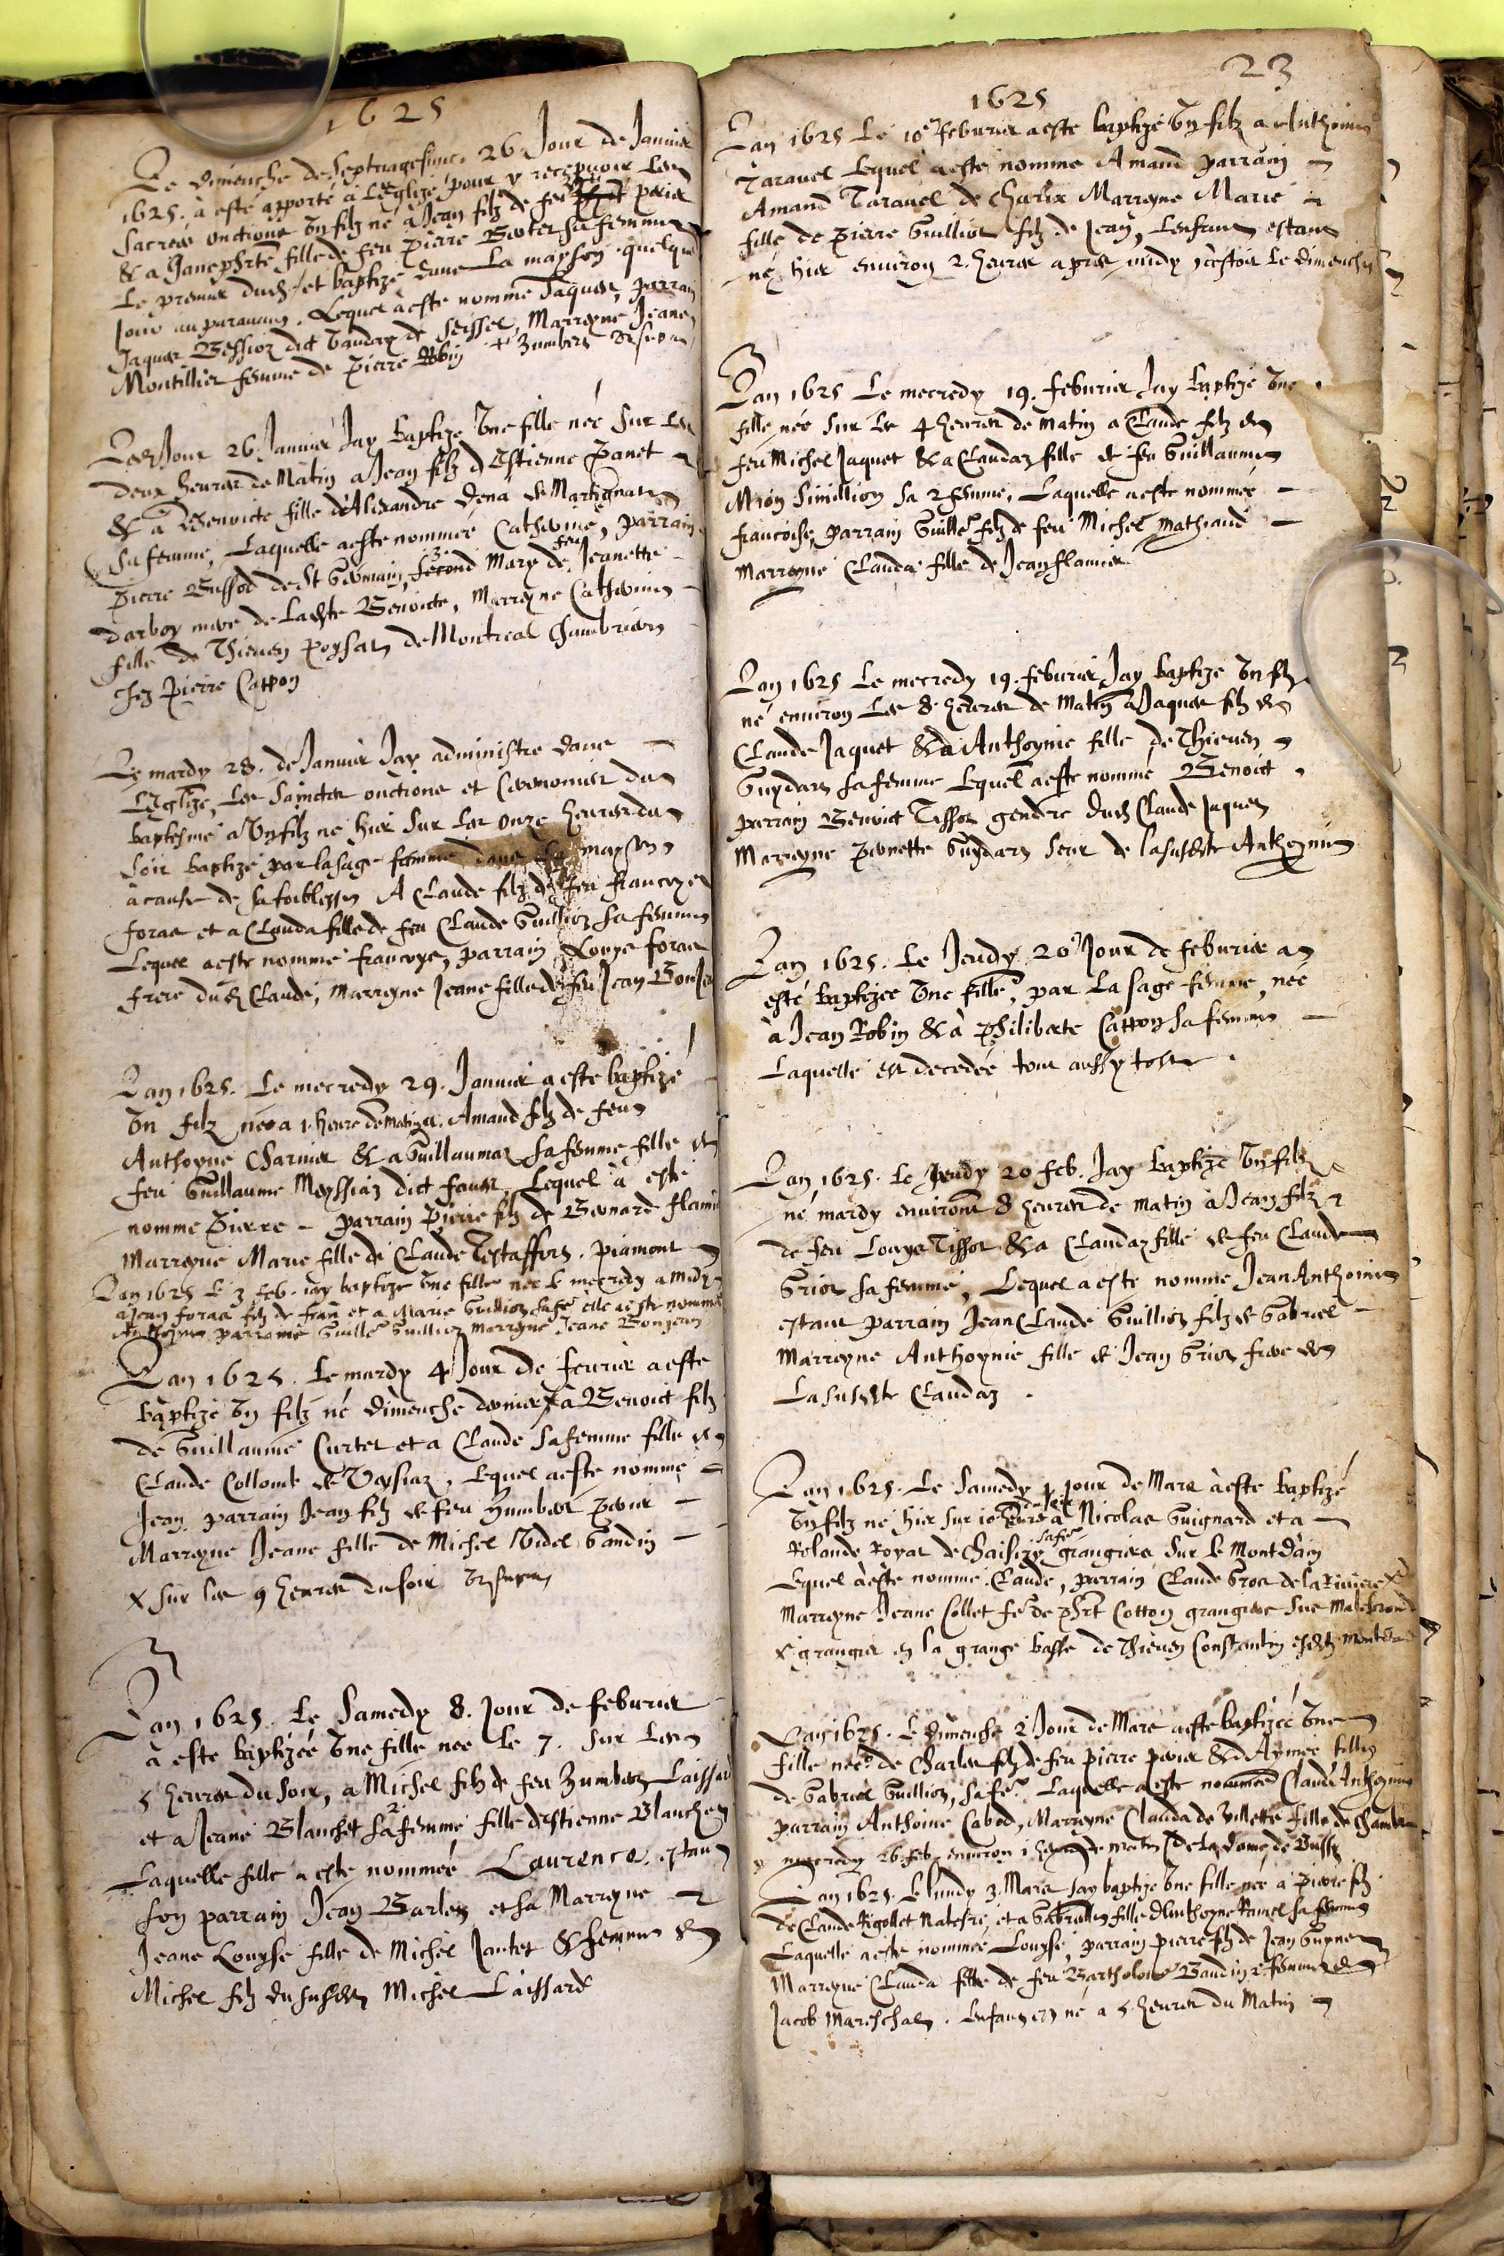 1625
Le dimenche de Septuagesime. 26. Jour de Janvier
1625. à esté apporté à L'Eglize pour y recepuoir les
sacrées onctions Un filz né à Jean filz de feu perier
& a Janephrte fille de feu pierre sa femme
Le premier dud. et baptizé dans La mayson quelque
Jour auparauant. Lequel a este nommé Jaques, parrain
Jaques Bession dict Vaudan de seissel, Marreyne Jeane
Montillier femme de Pierre Robin
Led Jour 26. Januier Jay baptizé Une fille née sur les
deux heures de Matin a Jean filz d'Estienne Panet
& à Benoicte fille d'Alexandre Dena de Martignat
sa femme, Laquelle a este nommée Catherine, parrain
Pierre Bussod de St Germain, second Mary de feu Jeanette
darboy mere de Ladte Benoicte, Marreyne Catherine
fille de Thieuen Poysat de Montreal Chambriere
chez Pierre Catton
Le mardy 28. de Januier Jay administre dans
L'Eglize Les Sainctes onctions et Ceremonies du
baptesme a Un filz ne hier sur les onze heures du
soir baptizé par la sage femme dans la mayson
à cause de sa foiblesse A Claude filz de feu francoys
foras et a Clauda fille de feu Claude Guillioz sa femme
Lequel a este nommé francoys, parrain Louys foras
frere dud Claude, Marreyne Jeane fille de feu Jean Bonj
Lan 1625. Le mecredy 29. Januier a este baptizé
Un filz né a 1. heure de matin a. Amand filz de feu
Anthoyne Charuier & a Guillaumaz sa femme fille de
feu Guillaume Meyssiaz dict fauer. Lequel à esté
nomme Pierre – parrain Pierre filz de Bernard flamier
Marreyne Marie fille de Claude Testaffort. piamont
Lan 1625 Le 3 feb. iay baptize Une fille nee le mecredy a midy
a Jean foras filz de fran et a Marie Guillioz sa fe elle a este nommé
Anthoyne parrain Guille Guillioz marreyne Jeane Bonjern
Lan 1625. Le mardy 4 Jour de feurier a este
baptizé Un filz né dimenche dernier x à Benoict filz
de Guillaume Curtet et a Claude sa femme fille de
Claude Collomb de Veysiaz, Lequel a este nommé
Jean. parrain Jean filz de feu Humbert perier
Marreyne Jeane fille de Michel Videl Gandin
x sur les 9 heures du soir
Lan 1625. Le Samedy 8. Jour de feburier
à esté baptizéé Une fille nee le 7. sur les
5 heures du soir, a Michel filz de feu Humbert Laissard
et a Jeane Blanchet sa 2 femme fille d'estienne Blanchet
Laquelle fille a este nommée Laurence. estant
son parrain Jean Barlet et sa Marreyne
Jeane Louyse fille de Michel Jantet & femme de
Michel filz du susdit Michel Laissard
23
1625
Lan 1625 Le 10e feburier a este baptizé Un filz a Anthoine
Tarauel Lequel a este nomme Amand parrain
Amand Tarauel de Charix Marreyne Marie
fille de Pierre Guilliot filz de Jean, Lenfant estant
né hier enuiron 2. heures apres midy estoit Le dimenche
Lan 1625 Le mecredy 19. feburier Jay baptizé Une
fille née sur les 4 heures de Matin a Claude filz de
feu Michel Jaquet & a Claudaz fille de feu Guillaume
Mion Simillion sa 2 femme, Laquelle a este nommée
francoise, parrain Guille filz de feu Michel Mathiaud
Marreyne Clauda fille de Jean flamier
Lan 1625 Le mecredy 19. feburier Jay baptizé Un filz
né enuiron Les 8 heures de Matin a Jaques filz de
Claude Jaquet & a Anthoynie fille de Thieuen
Guydard sa femme Lequel a este nommé Benoict
parrain Benoict Tissot gendre dud Claude Jaquet
Marreyne Pernette Guydard seur de la susdte Anthoynie
Lan 1625. Le Jeudy 20e Jour de feburier a
esté baptizee Une fille, par La sage femme, née
à Jean Robin & à Philiberte Catton sa femme
Laquelle est decedée tout aussy tost
Lan 1625. Le Jeudy 20 feb. Jay baptizé Un filz
né mardy enuiron 8 heures de matin à Jean filz
de feu Louys Tissot & a Claudaz fille de feu Claude
Griot sa femme, Lequel a este nomme Jean Anthoine
estant parrain Jean Claude Guillioz filz de Gabriel
Marreyne Anthoynie fille de Jean Griot frere de
La susdte Claudaz
Lan 1625. Le Samedy p jour de Mars à este baptizé
Un filz ne hier sur 10 heure à Nicolas Guignard et a
Rolande Royat de Chaisizy sa fe grangiers sur le Mont d'ain
Lequel à este nomme Claude, parrain Claude Gros de la Riuiere x
Marreyne Jeane Collet fe de phrt Cotton grangiere sur Malebronde
x grangier en la grange basse de Thieuen Constantin
Lan 1625. Le dimenche 2 Jour de Mars a este baptizéé Une
fille née x de Charles filz de feu pierre perier & d'Aymee fille
de Gabriel Guillioz, sa fe. Laquelle a este nommée Claude Anthoyne
parrain Anthoine Cabod, Marreyne Clauda de Villette fille de chambre
x mecredy 26 feb. enuiron 1 heure de matin de La dame de Bussy
Lan 1625. Le lundy 3. Mars Jay baptizé Une fille née a Pierre filz
de Claude Rigollet Malesre, et a Gabrielle fille d'Anthoyne Ramel sa femme
Laquelle a este nommée Louyse, parrain Pierre filz de Jean Guynet
Marreyne Clauda fille de feu Bartholome Baudin 2e femme de
Jacob Mareschal. Lenfant est né a 5 heures du Matin